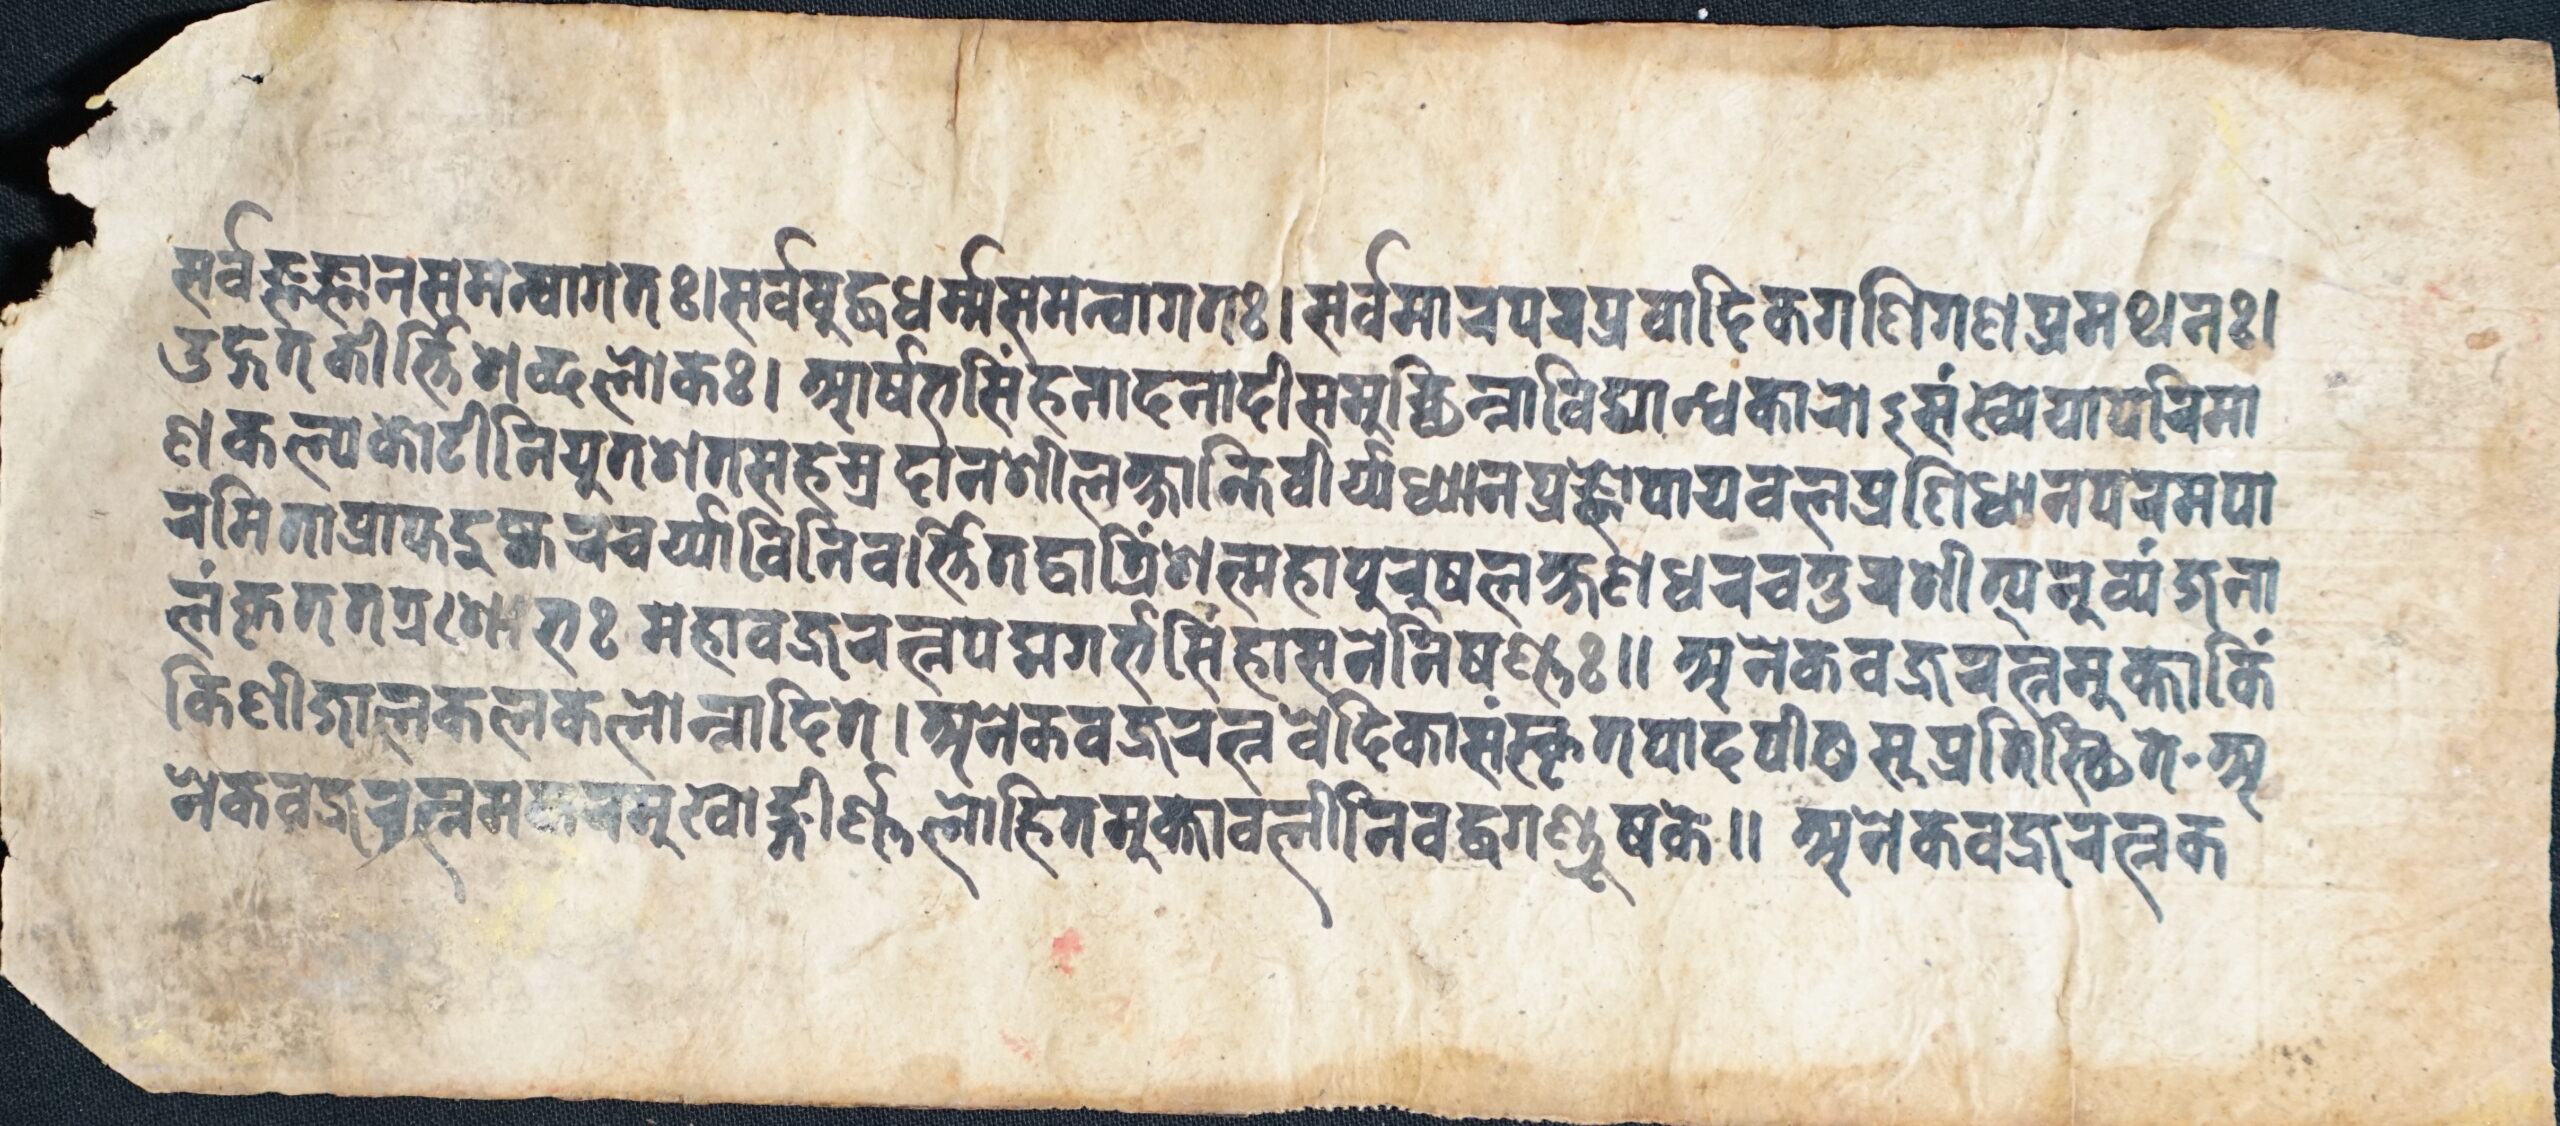 सर्वज्ञज्ञानसमन्वागतः। सर्वबुद्धधर्म्मसमन्वागतः। सर्वमारपरप्रवादिकगणिगणप्रमथनः।
उद्गतकीर्त्तिशब्दलोकः। आर्षभसिंहनादनादीसमुच्छिन्नाविद्यान्धकारोऽसंख्येयापरिमा
णकल्पकोटीनियुतशतसहस्रदानशीलक्षान्तिवीर्य्यध्यानप्रज्ञोपायबलप्रणिधानपरमपा
रमिताप्राप्तदुष्करचर्य्याविनिवर्त्तितद्वात्रिंशत्महापुरुषलक्षणधरचतुरशीत्यनुव्यंजना
लंकृततत्रशोभः महावज्ररत्नपद्मगर्भसिंहासनेनिषण्णः॥ अनेकवज्ररत्नमुक्ताकिं
किणीजालकलकलोन्नादिते। अनेकवज्ररत्नवेदिकासंस्कृतपादपीठसुप्रतिस्थिते· अ
नेकवज्ररत्नमकरमुखोद्गीर्ण्णलोहितमुक्तावलीनिबद्धगण्डूषके॥ अनेकवज्ररत्नक